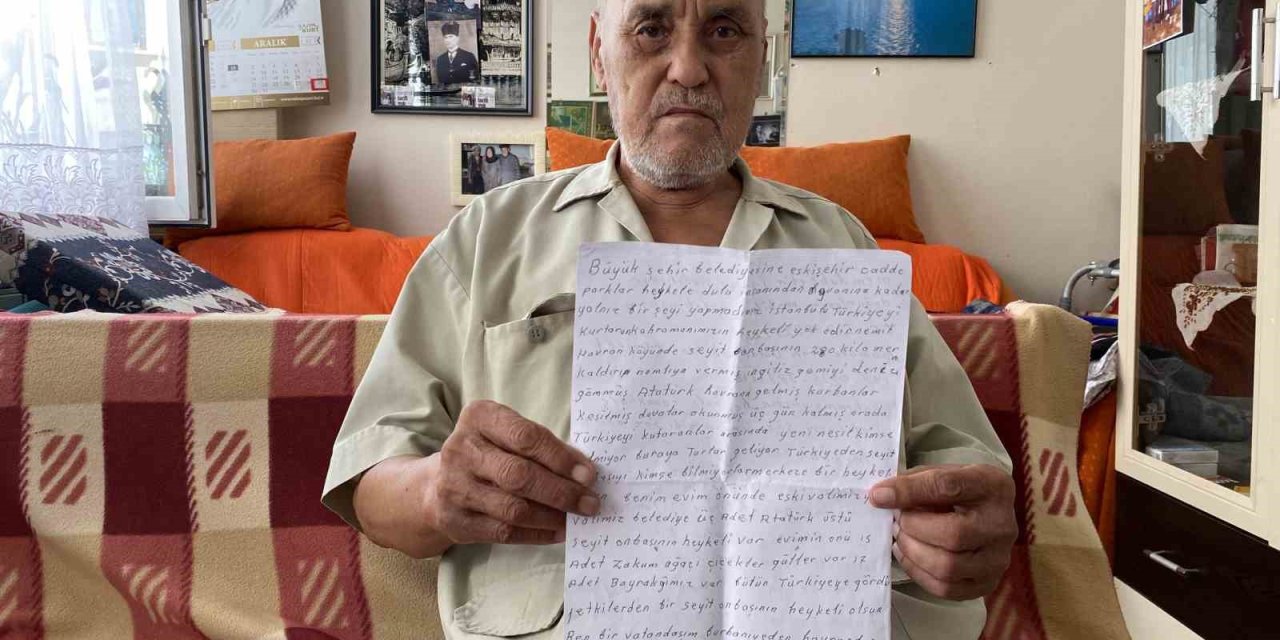 ARALIK
Büyük şehir belediyesine eskişehir cadde
parklar heykele dulu insanından hayvanına kadar
yalnız bir şeyi yapmadınız İstanbulu Türkiyeyi
Kurtaran kahramanımızın heykeli yok edirnemit
Havran köyünde seyit onbaşının 280 kilo mer
kaldırıp namluya vermiş ingiliz gemiyi denize
gömmüş Atatürk havrana gelmiş kurbanlar
Kesilmiş duvalar okunmuş üç gün kalmış orada
Türkiyeyi kutaranlar arasında yeni nesil kimse
bilmiyor buraya Turlar geliyor Türkiyeden seyit
kimse bilmiyorlar merkeze bir heykel
benim evim önünde eski valimiz
valimiz belediye üç Adet Atatürk üstü
seyit onbaşının heykeli var evimin önü iş
Adet Zakum ağaçı çiçekler güller var iz
Adet Bayrakğımız var bütün Türkiyeye gördü
yetkilerden bir seyit onbaşının heykeli olsun
Ben bir vatandaşım burhaniyeden